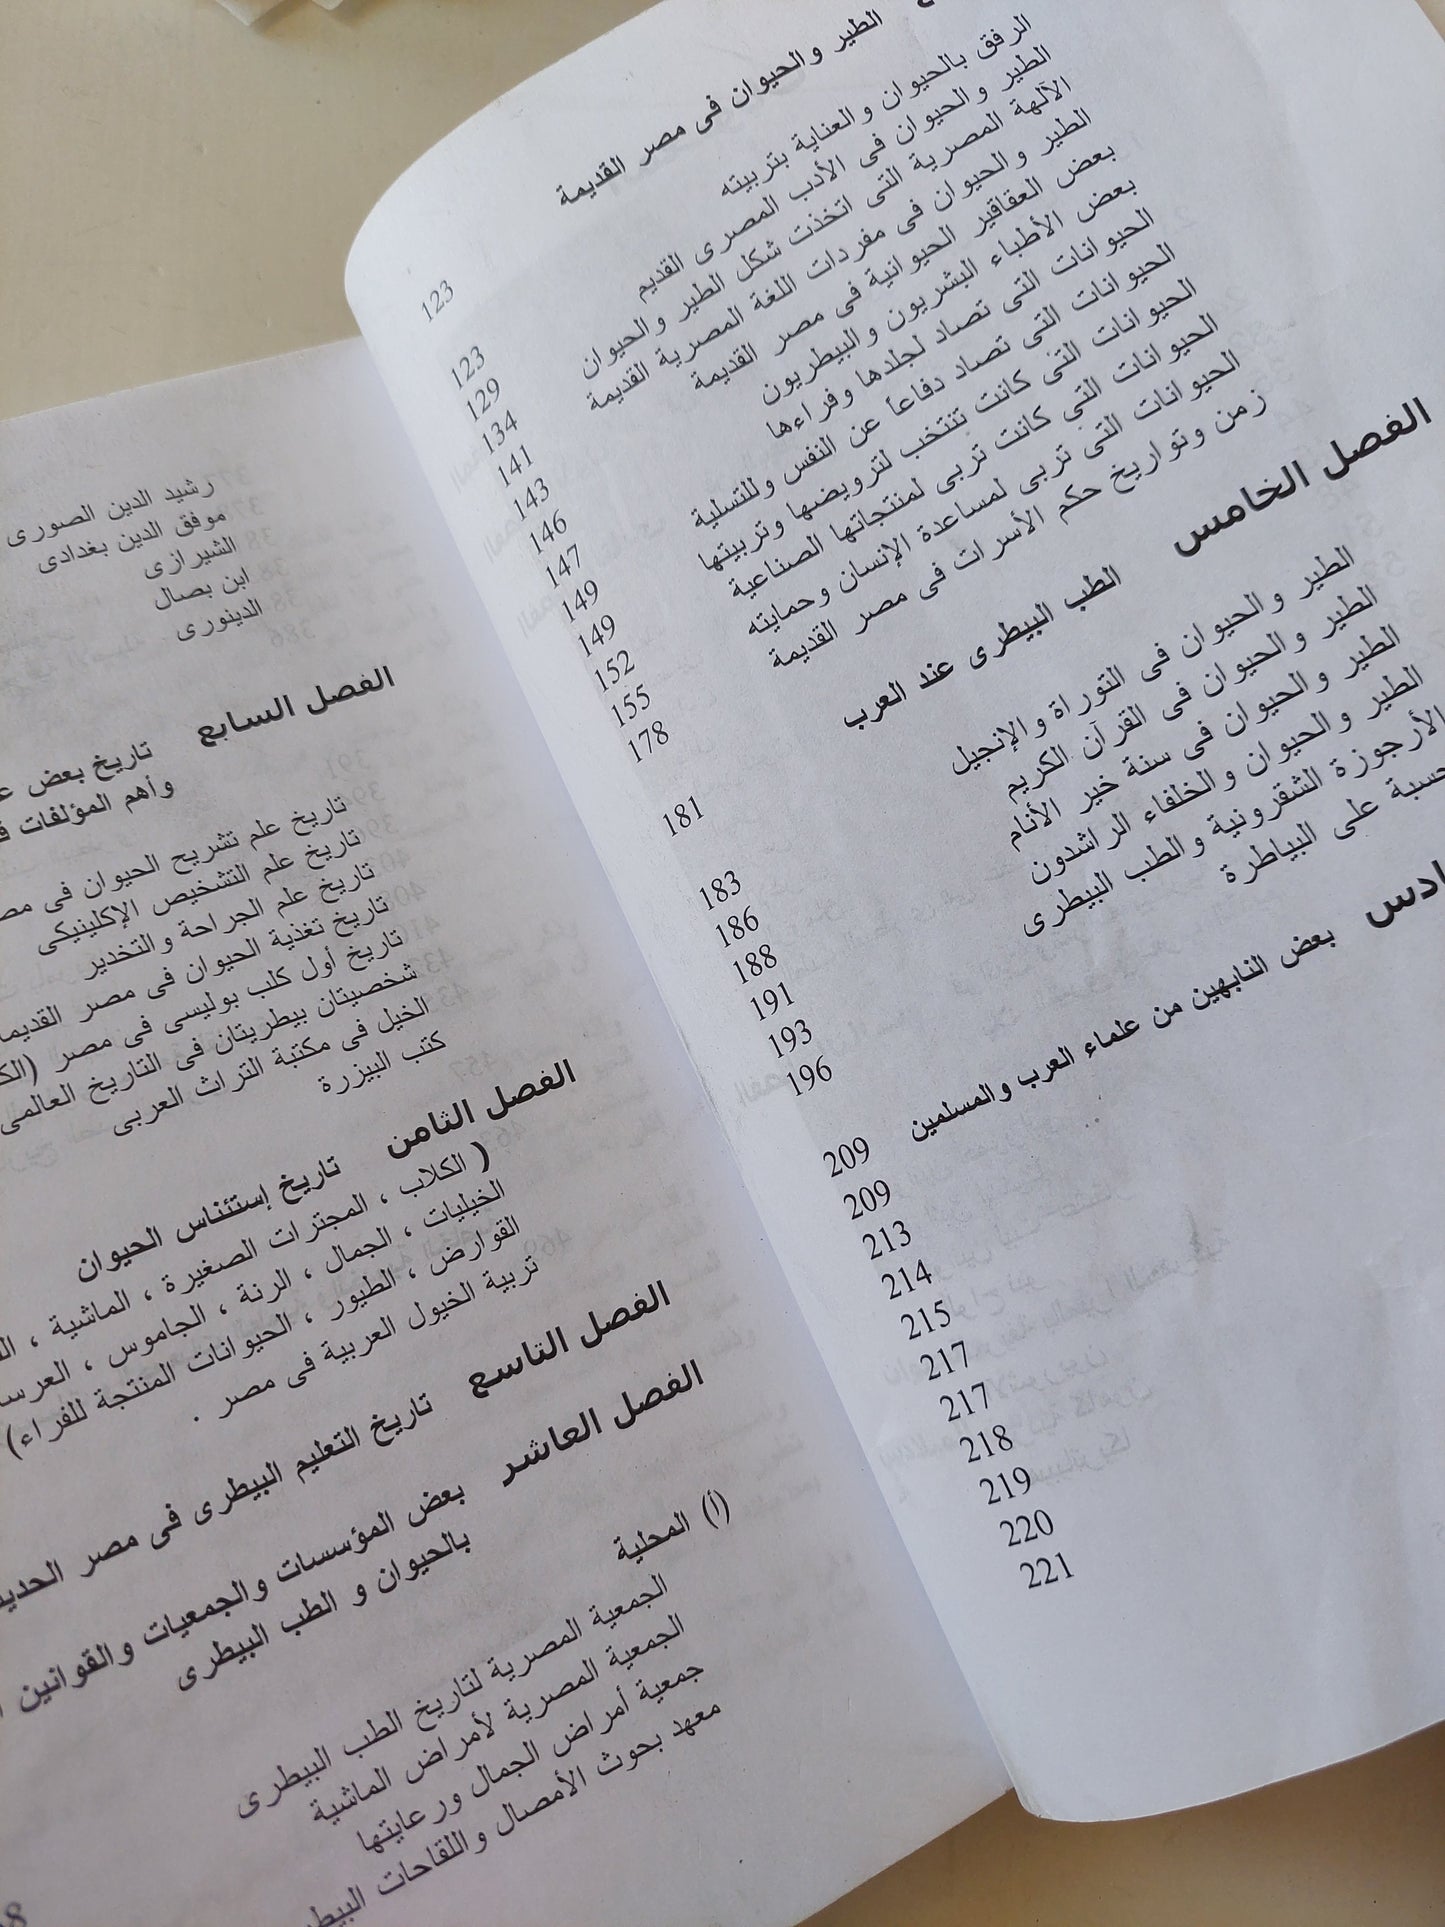 الطير والحيوان فى مصر القديمة 123
الرفق بالحيوان والعناية بتربيته 123
الطير والحيوان فى الأدب المصرى القديم 129
الآلهة المصرية التى اتخذت شكل الطير والحيوان 134
الطير والحيوان فى مفردات اللغة المصرية القديمة 141
بعض العقاقير الحيوانية فى مصر القديمة 143
بعض الأطباء البشريون والبيطريون 146
الحيوانات التى تصاد لجلدها وفراءها 147
الحيوانات التى تصاد دفاعاً عن النفس وللتسلية 149
الحيوانات التى كانت تنتخب لترويضها وتربيتها 149
الحيوانات التى كانت تربى لمنتجاتها الصناعية 152
الحيوانات التى تربى لمساعدة الإنسان وحمايته 155
زمن وتواريخ حكم الأسرات فى مصر القديمة 178
الفصل الخامس الطب البيطرى عند العرب 181
الطير والحيوان فى التوراة والإنجيل 183
الطير والحيوان فى القرآن الكريم 186
الطير والحيوان فى سنة خير الأنام 188
الطير والحيوان والخلفاء الراشدون 191
الأرجوزة الشقرونية والطب البيطرى 193
حسبة على البياطرة 196
ادس بعض النابهين من علماء العرب والمسلمين 209
209
213
214
215
217
217
218
219
220
221
رشيد الدين الصورى
موفق الدين بغدادى
الشيرازى
ابن بصال
الدينورى
الفصل السابع تاريخ بعض
وأهم المؤلفات
تاريخ علم تشريح الحيوان فى
تاريخ علم التشخيص الإكلينيكى
تاريخ علم الجراحة والتخدير
تاريخ تغذية الحيوان فى مصر
تاريخ أول كلب بوليسى فى مصر
شخصيتان بيطريتان فى التاريخ العالمى
الخيل فى مكتبة التراث العربى
كتب البيزرة
الفصل الثامن تاريخ إستئناس الحيوان
( الكلاب ، المجترات الصغيرة ، الماشية ،
الخيليات ، الجمال ، الرنة ، الجاموس ،
القوارض ، الطيور ، الحيوانات المنتجة للفراء)
تربية الخيول العربية فى مصر .
الفصل التاسع تاريخ التعليم البيطرى فى مصر
الفصل العاشر بعض المؤسسات والجمعيات والقوانين
بالحيوان و الطب البيطرى
(أ) المحلية
الجمعية المصرية لتاريخ الطب البيطرى
الجمعية المصرية لأمراض الماشية
جمعية أمراض الجمال ورعايتها
معهد بحوث الأمصال واللقاحات